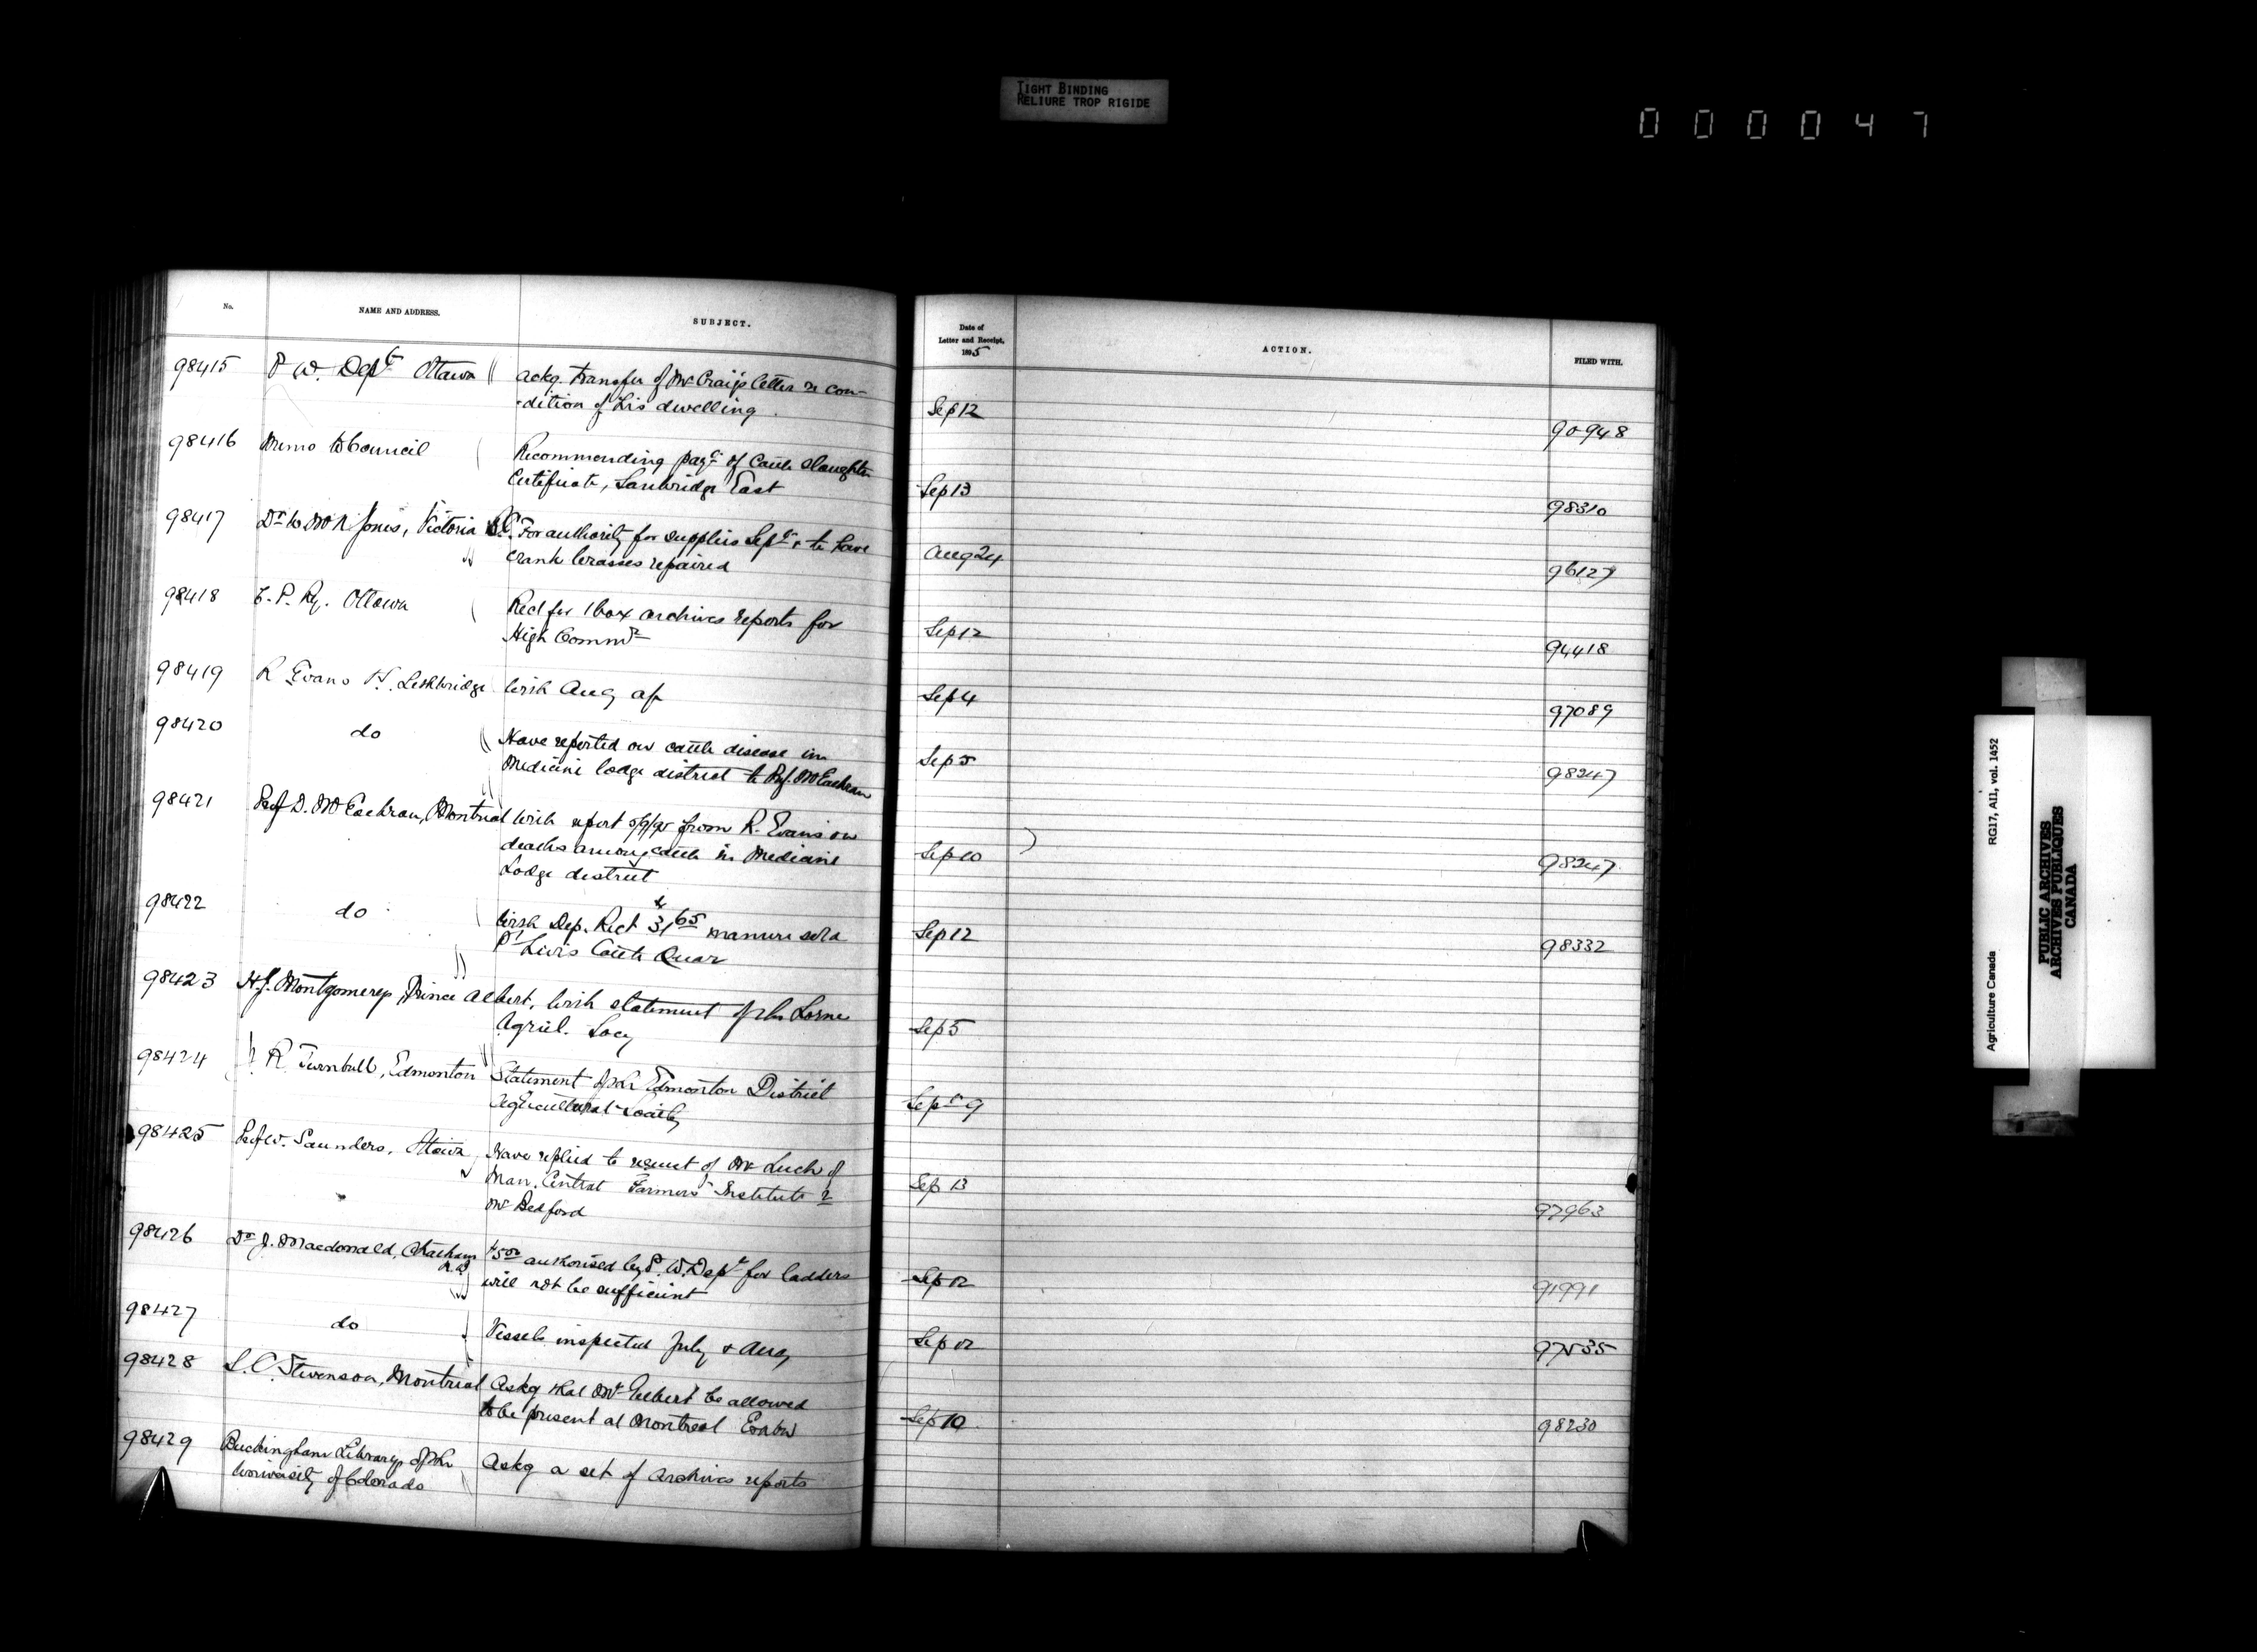 TIGHT BINDING
RELIURE TROP RIGIDE
000047
No.
NAME AND ADDRESS.
SUBJECT.
98415 P. W. Dept Ottawa
Ackg. transfer of Mr Craig's letter re con-
-dition of his dwelling.
98416 Memo to Council
Recommending payt of Cattle Slaughter
Certificate, East
98417 Dr W. Jones, Victoria B.C.
For authority for supplies Sept & to have
crank brasses repaired
98418 C. P. Ry. Ottawa
Rect for 1 box archives reports for
High Commr
98419 R Evans Lethbridge
With Aug a/c
98420 do
Have reported on cattle disease in
Medicine lodge district to Prof. McEachran
98421 Prof D. McEachran, Montreal
With report 5/9/95 from R. Evans on
deaths among cattle in Medicine
Lodge district
98422 do
With Dep. Rect $31 65 manure sold
Pt Levis Cattle Quar
98423 H.J. Montgomery, Prince Albert,
With statement of the Lorne
Agricl. Socy
98424 R. Turnbull, Edmonton
Statement of the Edmonton District
Agricultural Society
98425 Prof W. Saunders, Ottawa
Have replied to request of Mr Leech of
Man. Central Farmers' Institute re
Mr Bedford
98426 Dr J. Macdonald, Chatham
N.B.
$5 00 authorised by P. W. Dept for ladders
will not be sufficient
98427 do
Vessels inspected July & Aug
98428 S. C. Stevenson, Montreal
Askg that Mr be allowed
to be present at Montreal Exhbn
98429 Buckingham Library of the
University of Colorado
Askg a set of Archives reports
Date of
Letter and Receipt,
1895
ACTION.
FILED WITH.
Sep 12 90948
Sep 13 98310
Aug 24 96127
Sep 12 94418
Sep 4 97089
Sep 5 98247
Sep 10 98247
Sep 12 98332
Sep 5
Sept 9
Sep 13 97963
Sep 12 91991
Sep 12 97535
Sep 10 98230
Agriculture Canada RG17, AI1, vol. 1452
PUBLIC ARCHIVES
ARCHIVES PUBLIQUES
CANADA